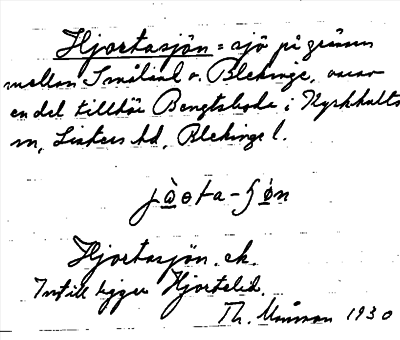 Hjortasjön = sjö på gränsen
mellan Småland o. Blekinge, varav
en del tillhör Bengtsboda i Kyrkhults
sn, Listers hd, Blekinge l.
jòːta-ʃön
Hjortasjön. ek.
Intill ligger Hjorteled.
Th. Månsson 1930